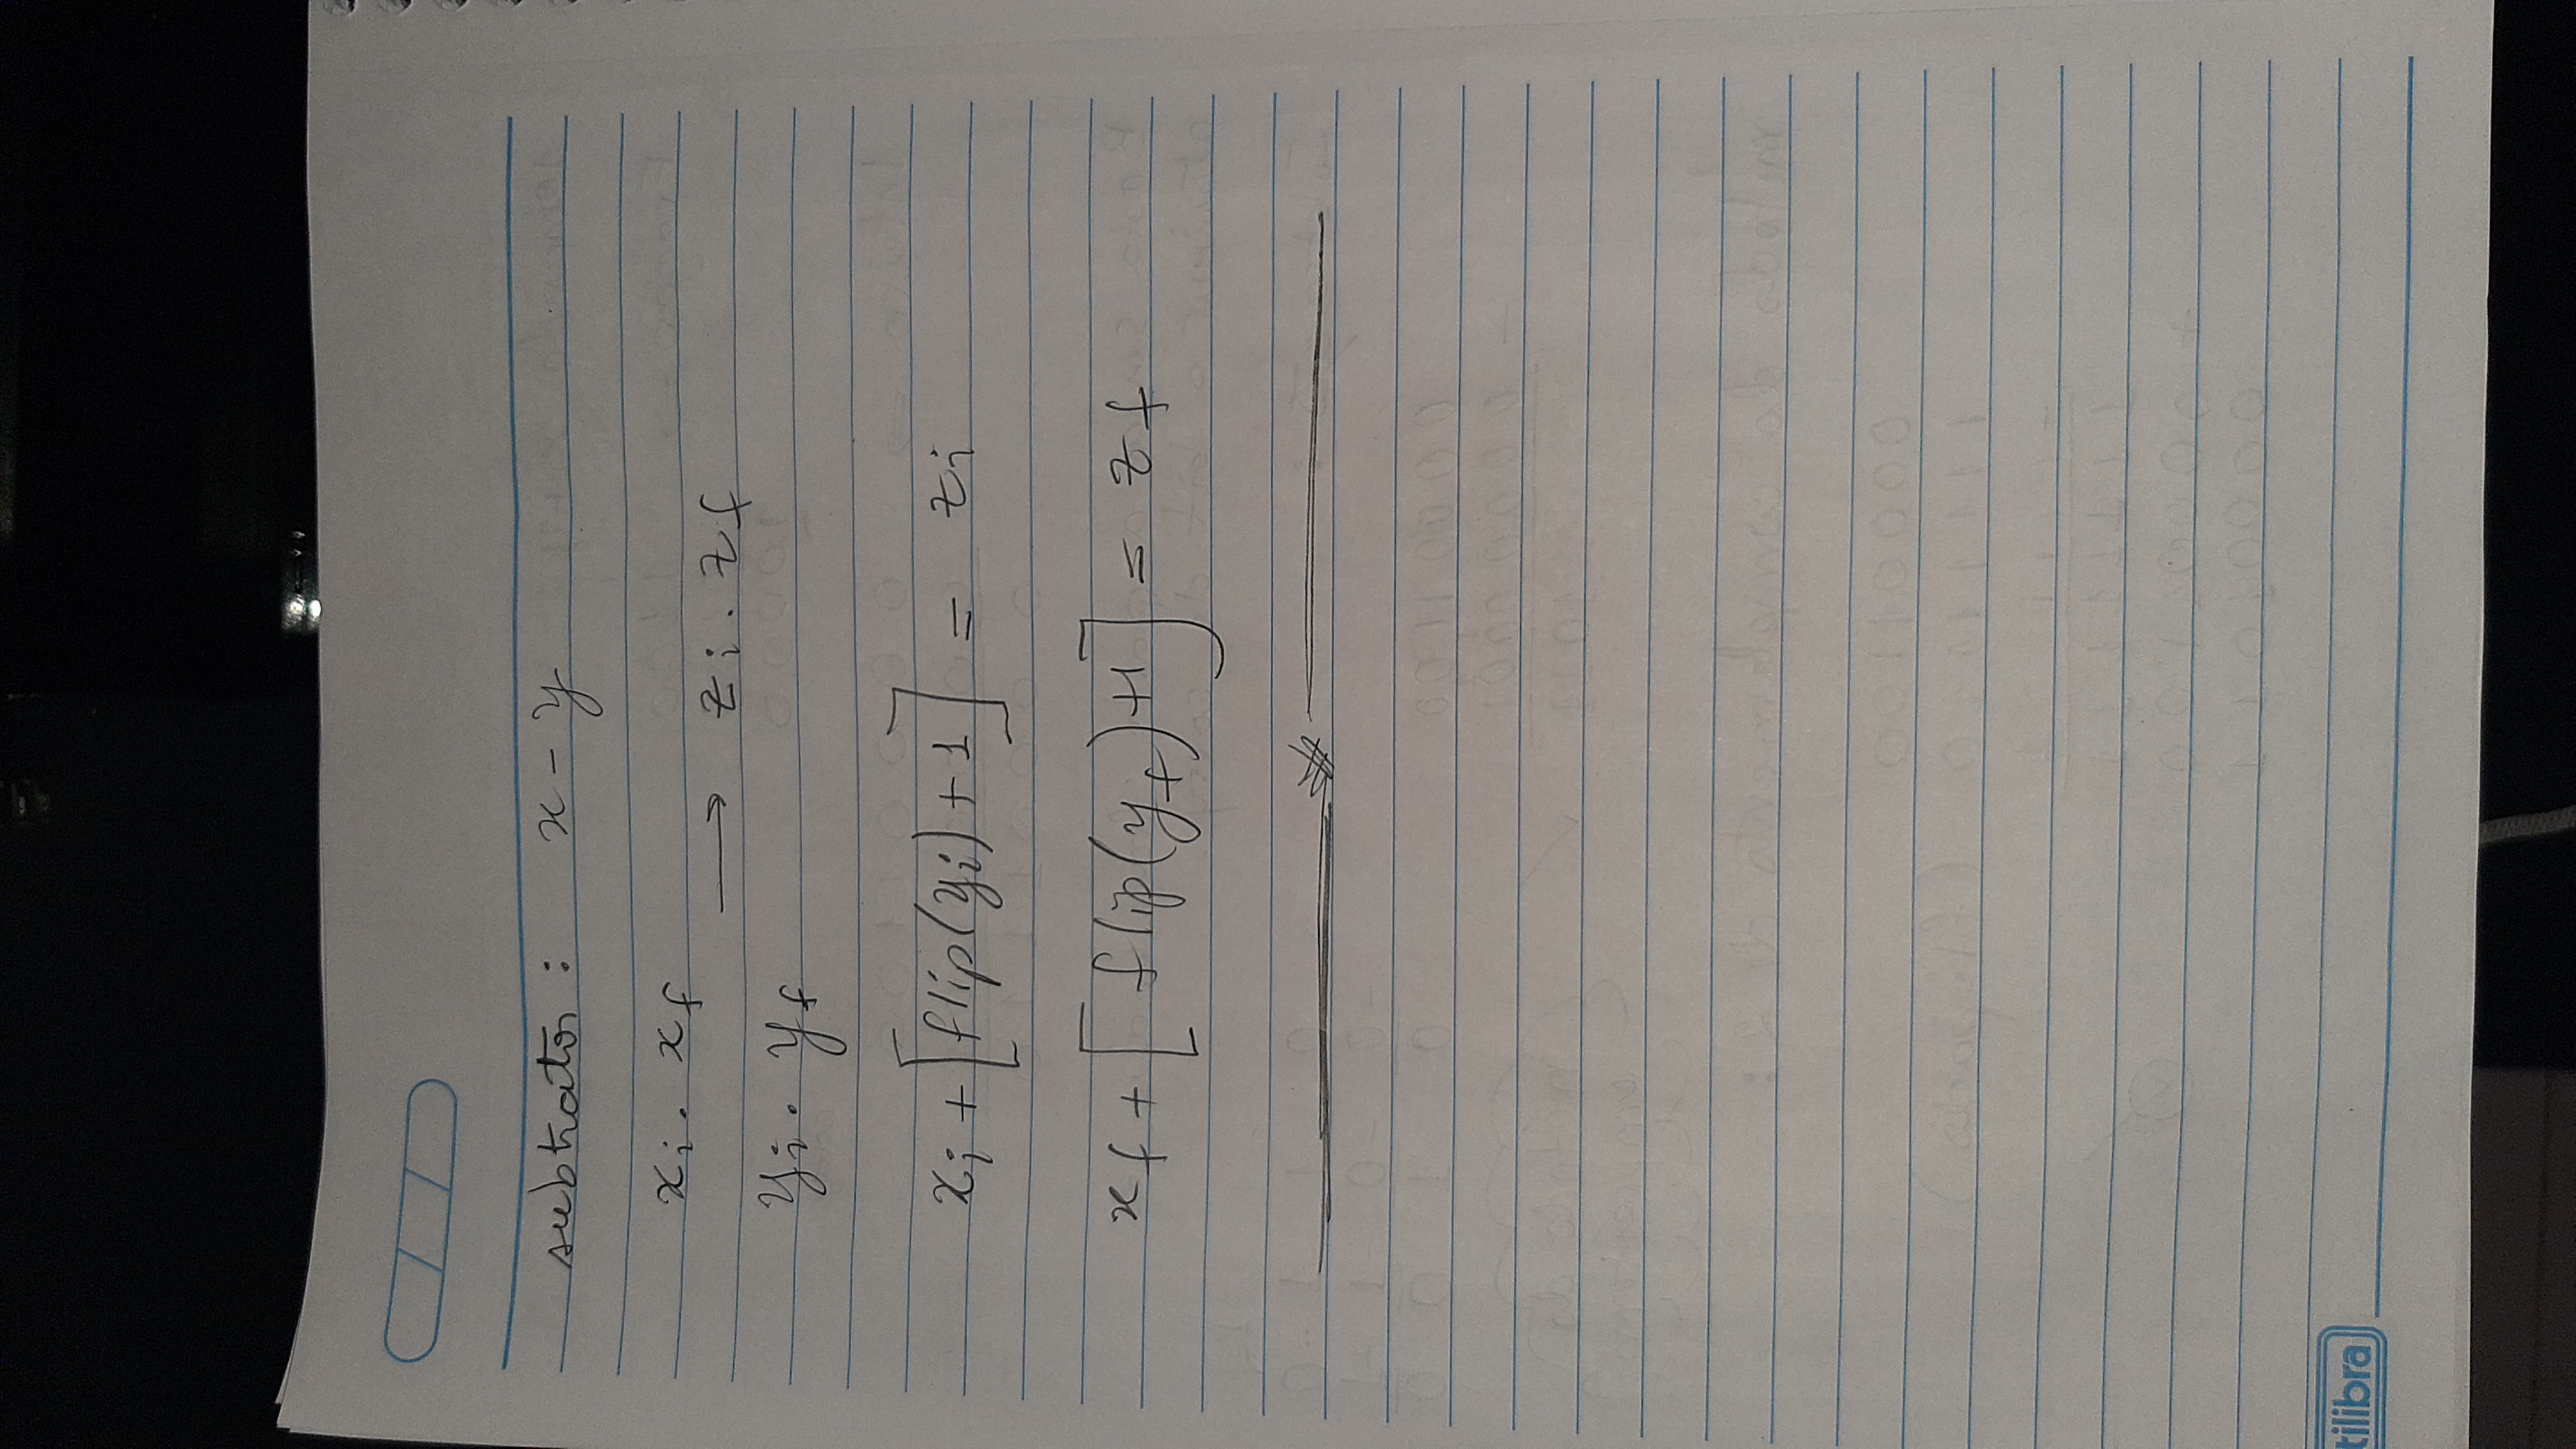 subtrator: x - y
xi. xf
→ zi. zf
yi. yf
xi + [flip(yi) + 1] = zi
xf + [flip(yf) + 1] = zf
tilibra